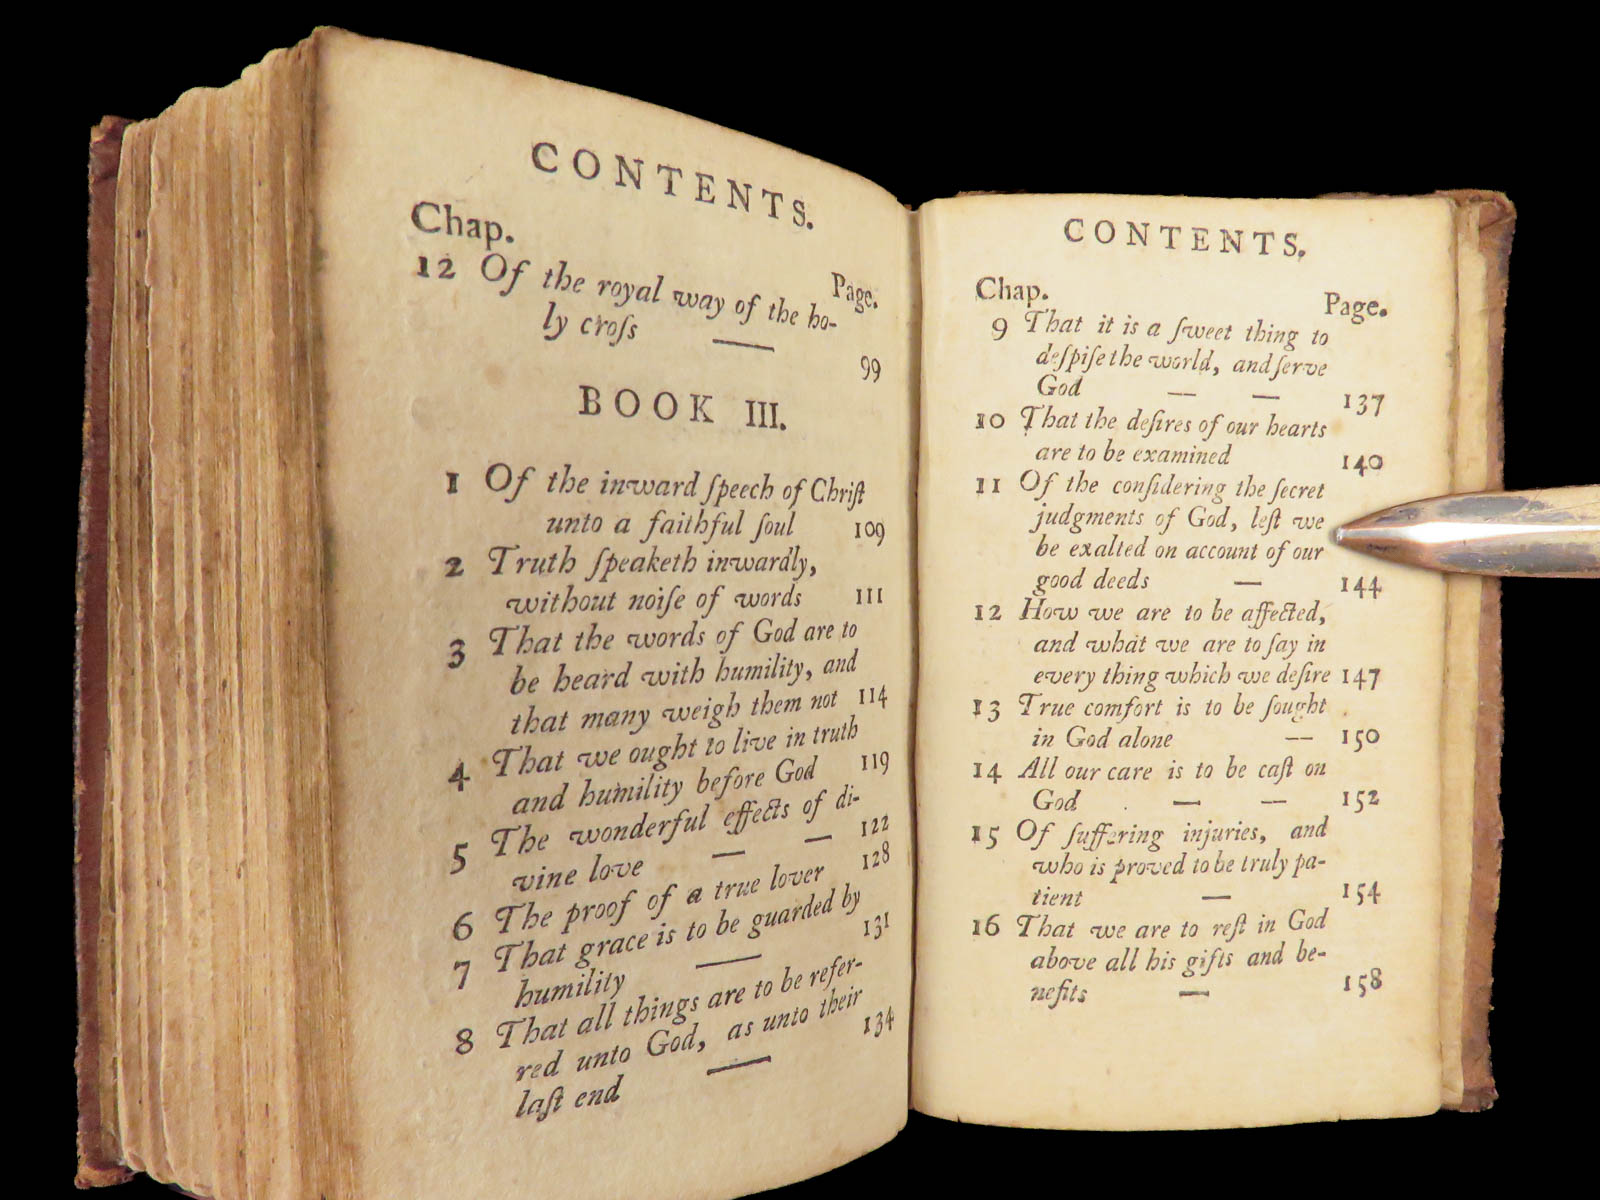 CONTENTS.
Chap.
Page.
12 Of the royal way of the ho-
ly croſs — 99
BOOK III.
1 Of the inward ſpeech of Chriſt
unto a faithful ſoul 109
2 Truth ſpeaketh inwardly,
without noiſe of words 111
3 That the words of God are to
be heard with humility, and
that many weigh them not 114
4 That we ought to live in truth
and humility before God 119
5 The wonderful effects of di-
vine love — — 122
6 The proof of a true lover 128
7 That grace is to be guarded by
humility — 131
8 That all things are to be refer-
red unto God, as unto their
laſt end — 134
CONTENTS.
Chap.
Page.
9 That it is a ſweet thing to
deſpiſe the world, and ſerve
God — — 137
10 That the deſires of our hearts
are to be examined 140
11 Of the conſidering the ſecret
judgments of God, leſt we
be exalted on account of our
good deeds — 144
12 How we are to be affected,
and what we are to ſay in
every thing which we deſire 147
13 True comfort is to be ſought
in God alone — 150
14 All our care is to be caſt on
God — — 152
15 Of ſuffering injuries, and
who is proved to be truly pa-
tient — 154
16 That we are to reſt in God
above all his gifts and be-
nefits — 158